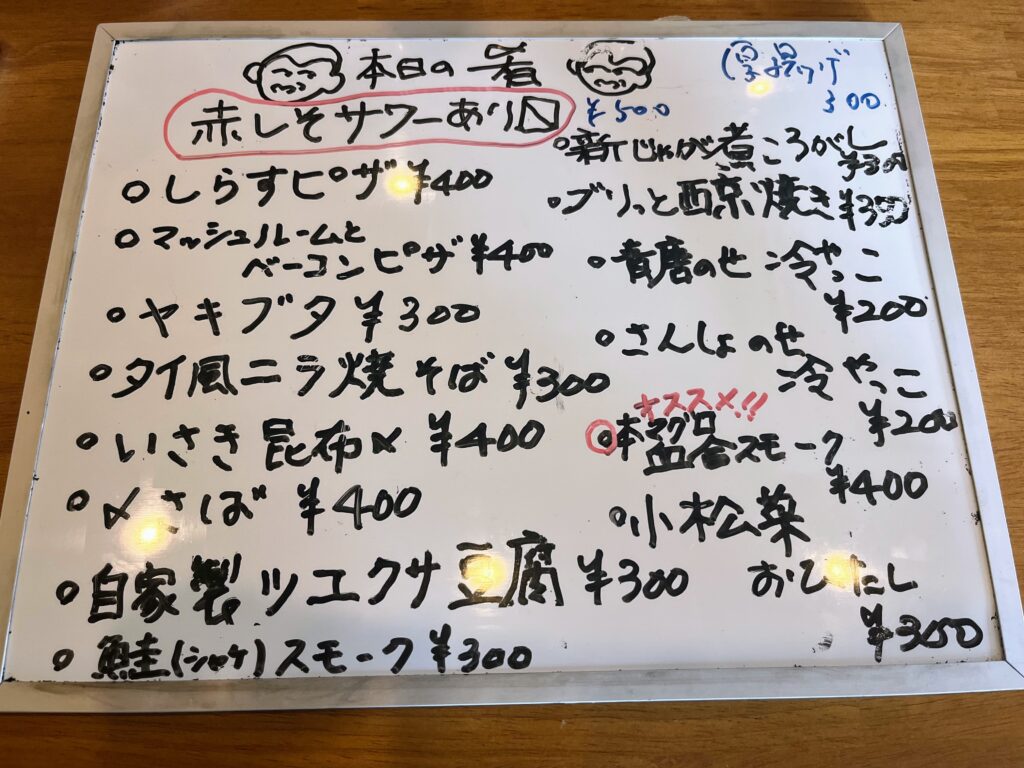 本日の肴
赤しそサワーあり〼
¥500
厚揚げ
300
○しらすピザ ¥400
○マッシュルームと
ベーコンピザ ¥400
○ヤキブタ ¥300
○タイ風ニラ焼そば ¥300
○いさき昆布〆 ¥400
○〆さば ¥400
○自家製ツユクサ豆腐 ¥300
○鮭(シャケ)スモーク ¥300
○新じゃが煮ころがし
¥300
○ブリっと西京焼き ¥300
○青唐のせ冷やっこ
¥200
○さんしょのせ
冷やっこ
¥200
オススメ!!
○本マグロ
スモーク
¥400
○小松菜
おひたし
¥300